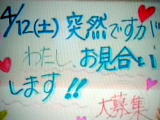 4/12(土)突然ですが
わたし、お見合い
します!!
大募集